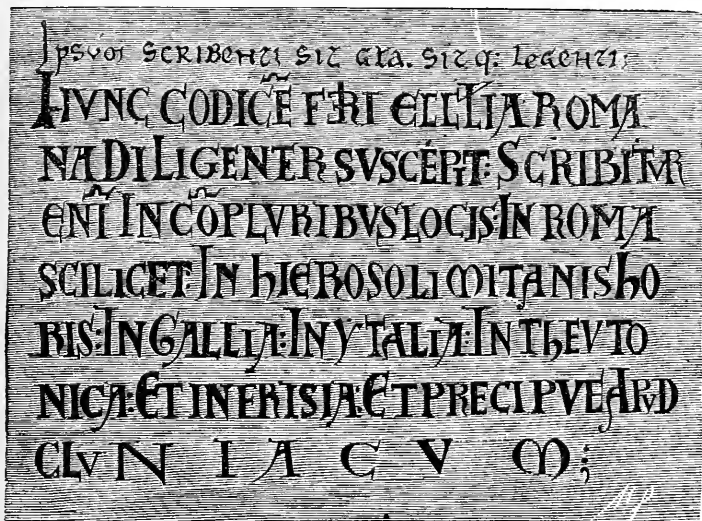 Ipsvm SCRIBENTI SIT Gła. SITq: LEGENTI:
HVNC CODICE̅ P̅RI ECLLIA ROMA
NA DILIGENTER SVSCEPIT: SCRIBITVR
ENI̅ IN CO̅PLVRIBVS LOCIS: IN ROMA
SCILICET: IN hIEROSOLIMITANIS hO
RIS: IN GALLIA: IN YTALIA: IN ThEVTO
NICA: ET IN FRISIA: ET PRECIPVE APVD
CLVNIACVM;